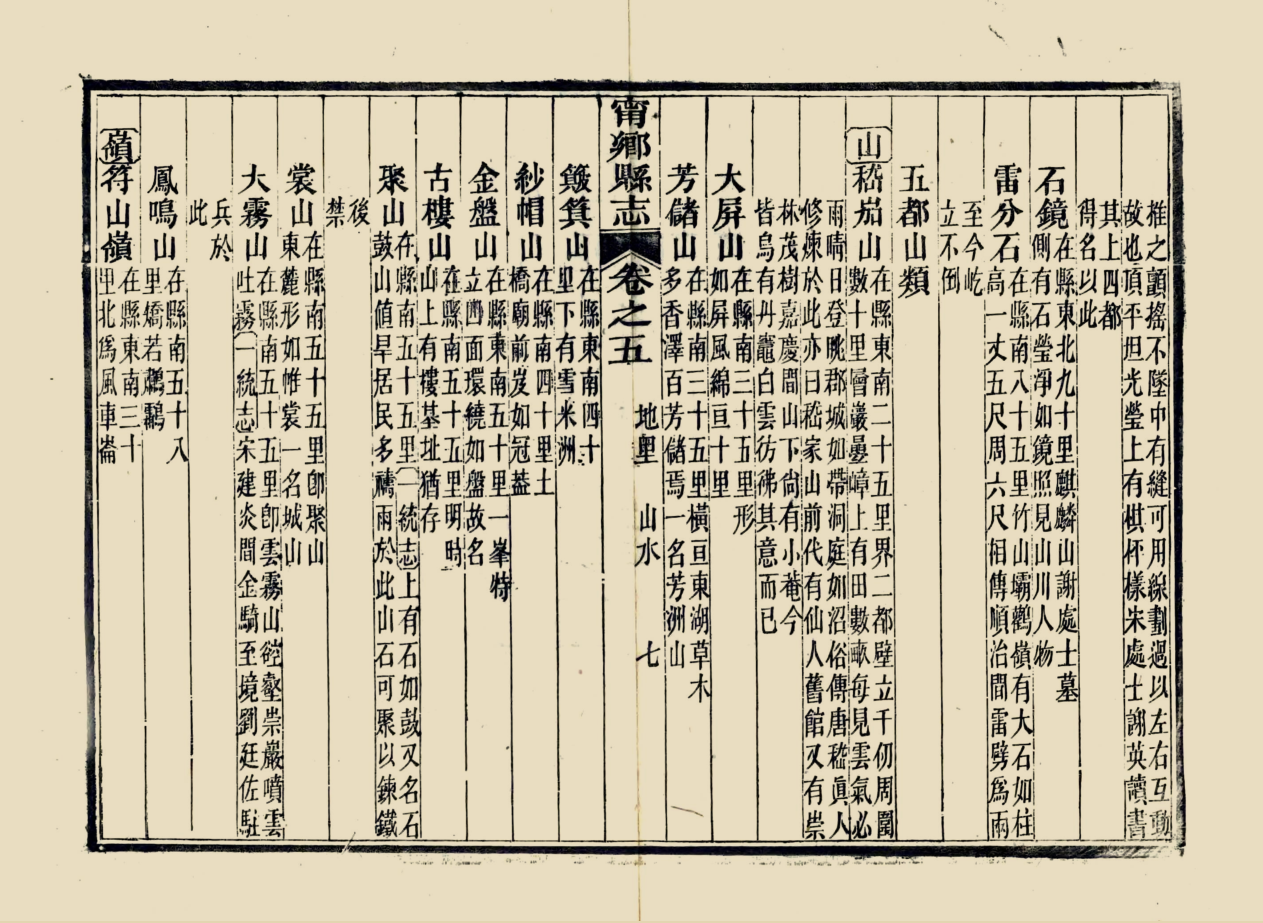 推之顫搖不墜中有縫可用線劃過以左右互動
故也頂平坦光瑩上有棋枰樣朱處士謝英讀書
其上四都
得名以此
石鏡在縣東北九十里麒麟山謝處士墓
側有石瑩淨如鏡照見山川人物
雷分石在縣南八十五里竹山壩鸛嶺有大石如柱
高一丈五尺周六尺相傳順治間雷劈爲兩
至今屹
立不倒
五都山類
山嵇茄山在縣東南二十五里界二都壁立千仞周圍
數十里層巖疊嶂上有田數畝每見雲氣必
雨晴日登眺郡城如帶洞庭如沼俗傳唐嵇眞人
修煉於此亦曰嵇家山前代有仙人舊館又有崇
林茂樹嘉慶間山下尙有小菴今
皆烏有丹竈白雲彷彿其意而已
大屏山在縣南三十五里形
如屏風綿亘十里
芳儲山在縣南三十五里橫亘東湖草木
多香澤百芳儲焉一名芳洲山
甯鄉縣志 卷之五 地里 山水 七
簸箕山在縣東南四十
里下有雪米洲
紗帽山在縣南四十里土
橋廟前岌如冠蓋
金盤山在縣東南五十里一峯特
立四面環繞如盤故名
古樓山在縣南五十五里明時
山上有摟基址猶存
聚山在縣南五十五里一統志上有石如鼓又名石
鼓山値旱居民多禱雨於此山石可聚以鍊鐵
後
禁
裳山在縣南五十五里卽聚山
東麓形如帷裳一名城山
大霧山在縣南五十五里卽雲霧山磴壑崇巖噴雲
吐霧一統志宋建炎間金騎至境劉廷佐駐
兵於
此
鳳鳴山在縣南五十八
里矯若鸕鶿
嶺符山嶺在縣東南三十
里北爲風車崙